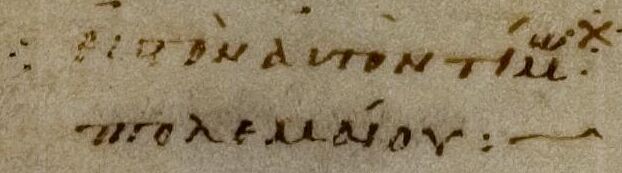 εἰς τὸν ἀυτὸν τίμω
πτολεμαίου :—